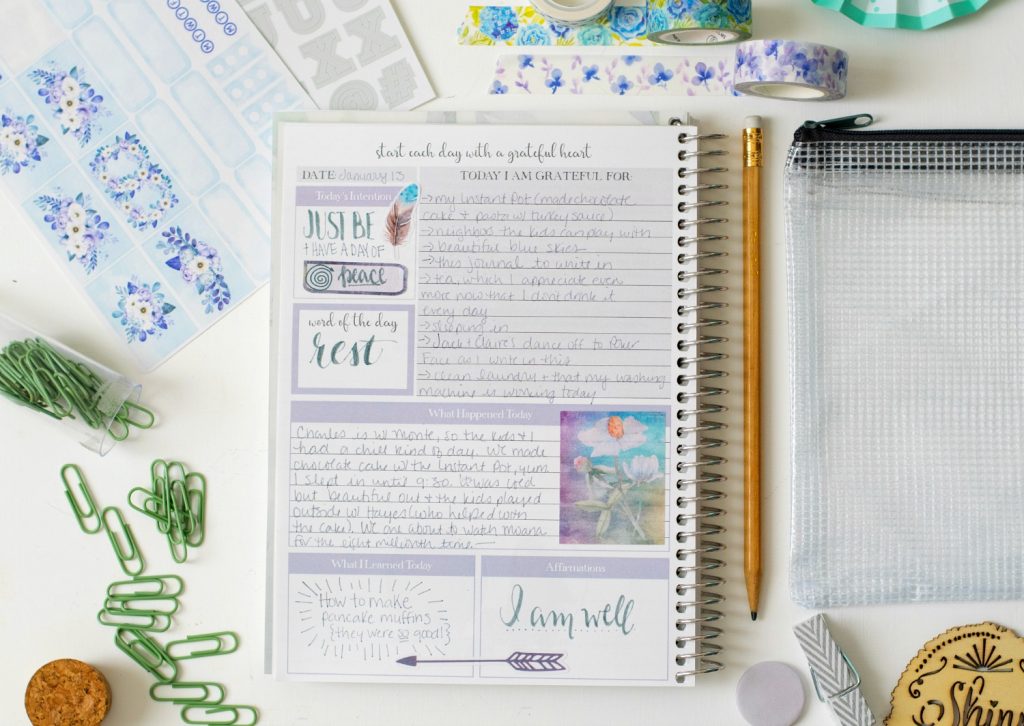 start each day with a grateful heart
DATE: January 13
Today's Intention
JUST BE
+ HAVE A DAY OF
peace
word of the day
rest
TODAY I AM GRATEFUL FOR:
→my Instant Pot (made chocolate
cake + pasta w/ turkey sauce)
→neighbors the kids can play with
→beautiful blue skies
→this journal to write in
→tea, which I appreciate even
more now that I don't drink it
every day
→sleeping in
→Jack + Claire's dance off to Poker
Face as I write in this
→clean laundry + that my washing
machine is working today
What Happened Today
Charles is w/ Monte, so the kids + I
had a chill kind of day. We made
chocolate cake w/ the Instant Pot, yum.
I slept in until 9:30. It was cold
but beautiful out + the kids played
outside w/ Hayes (who helped with
the cake). We are about to watch Moana
for the eight millionth time.
What I Learned Today
How to make
pancake muffins
{they were so good!}
Affirmations
I am well
MTWTF
MTWTF
Shin